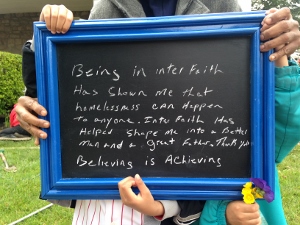 Being in inter Faith
Has Shown me that
homelessness can Happen
to anyone. Inter Faith Has
Helped Shape me into a Better
man and a great Father. Thank You
Believing is Achieving